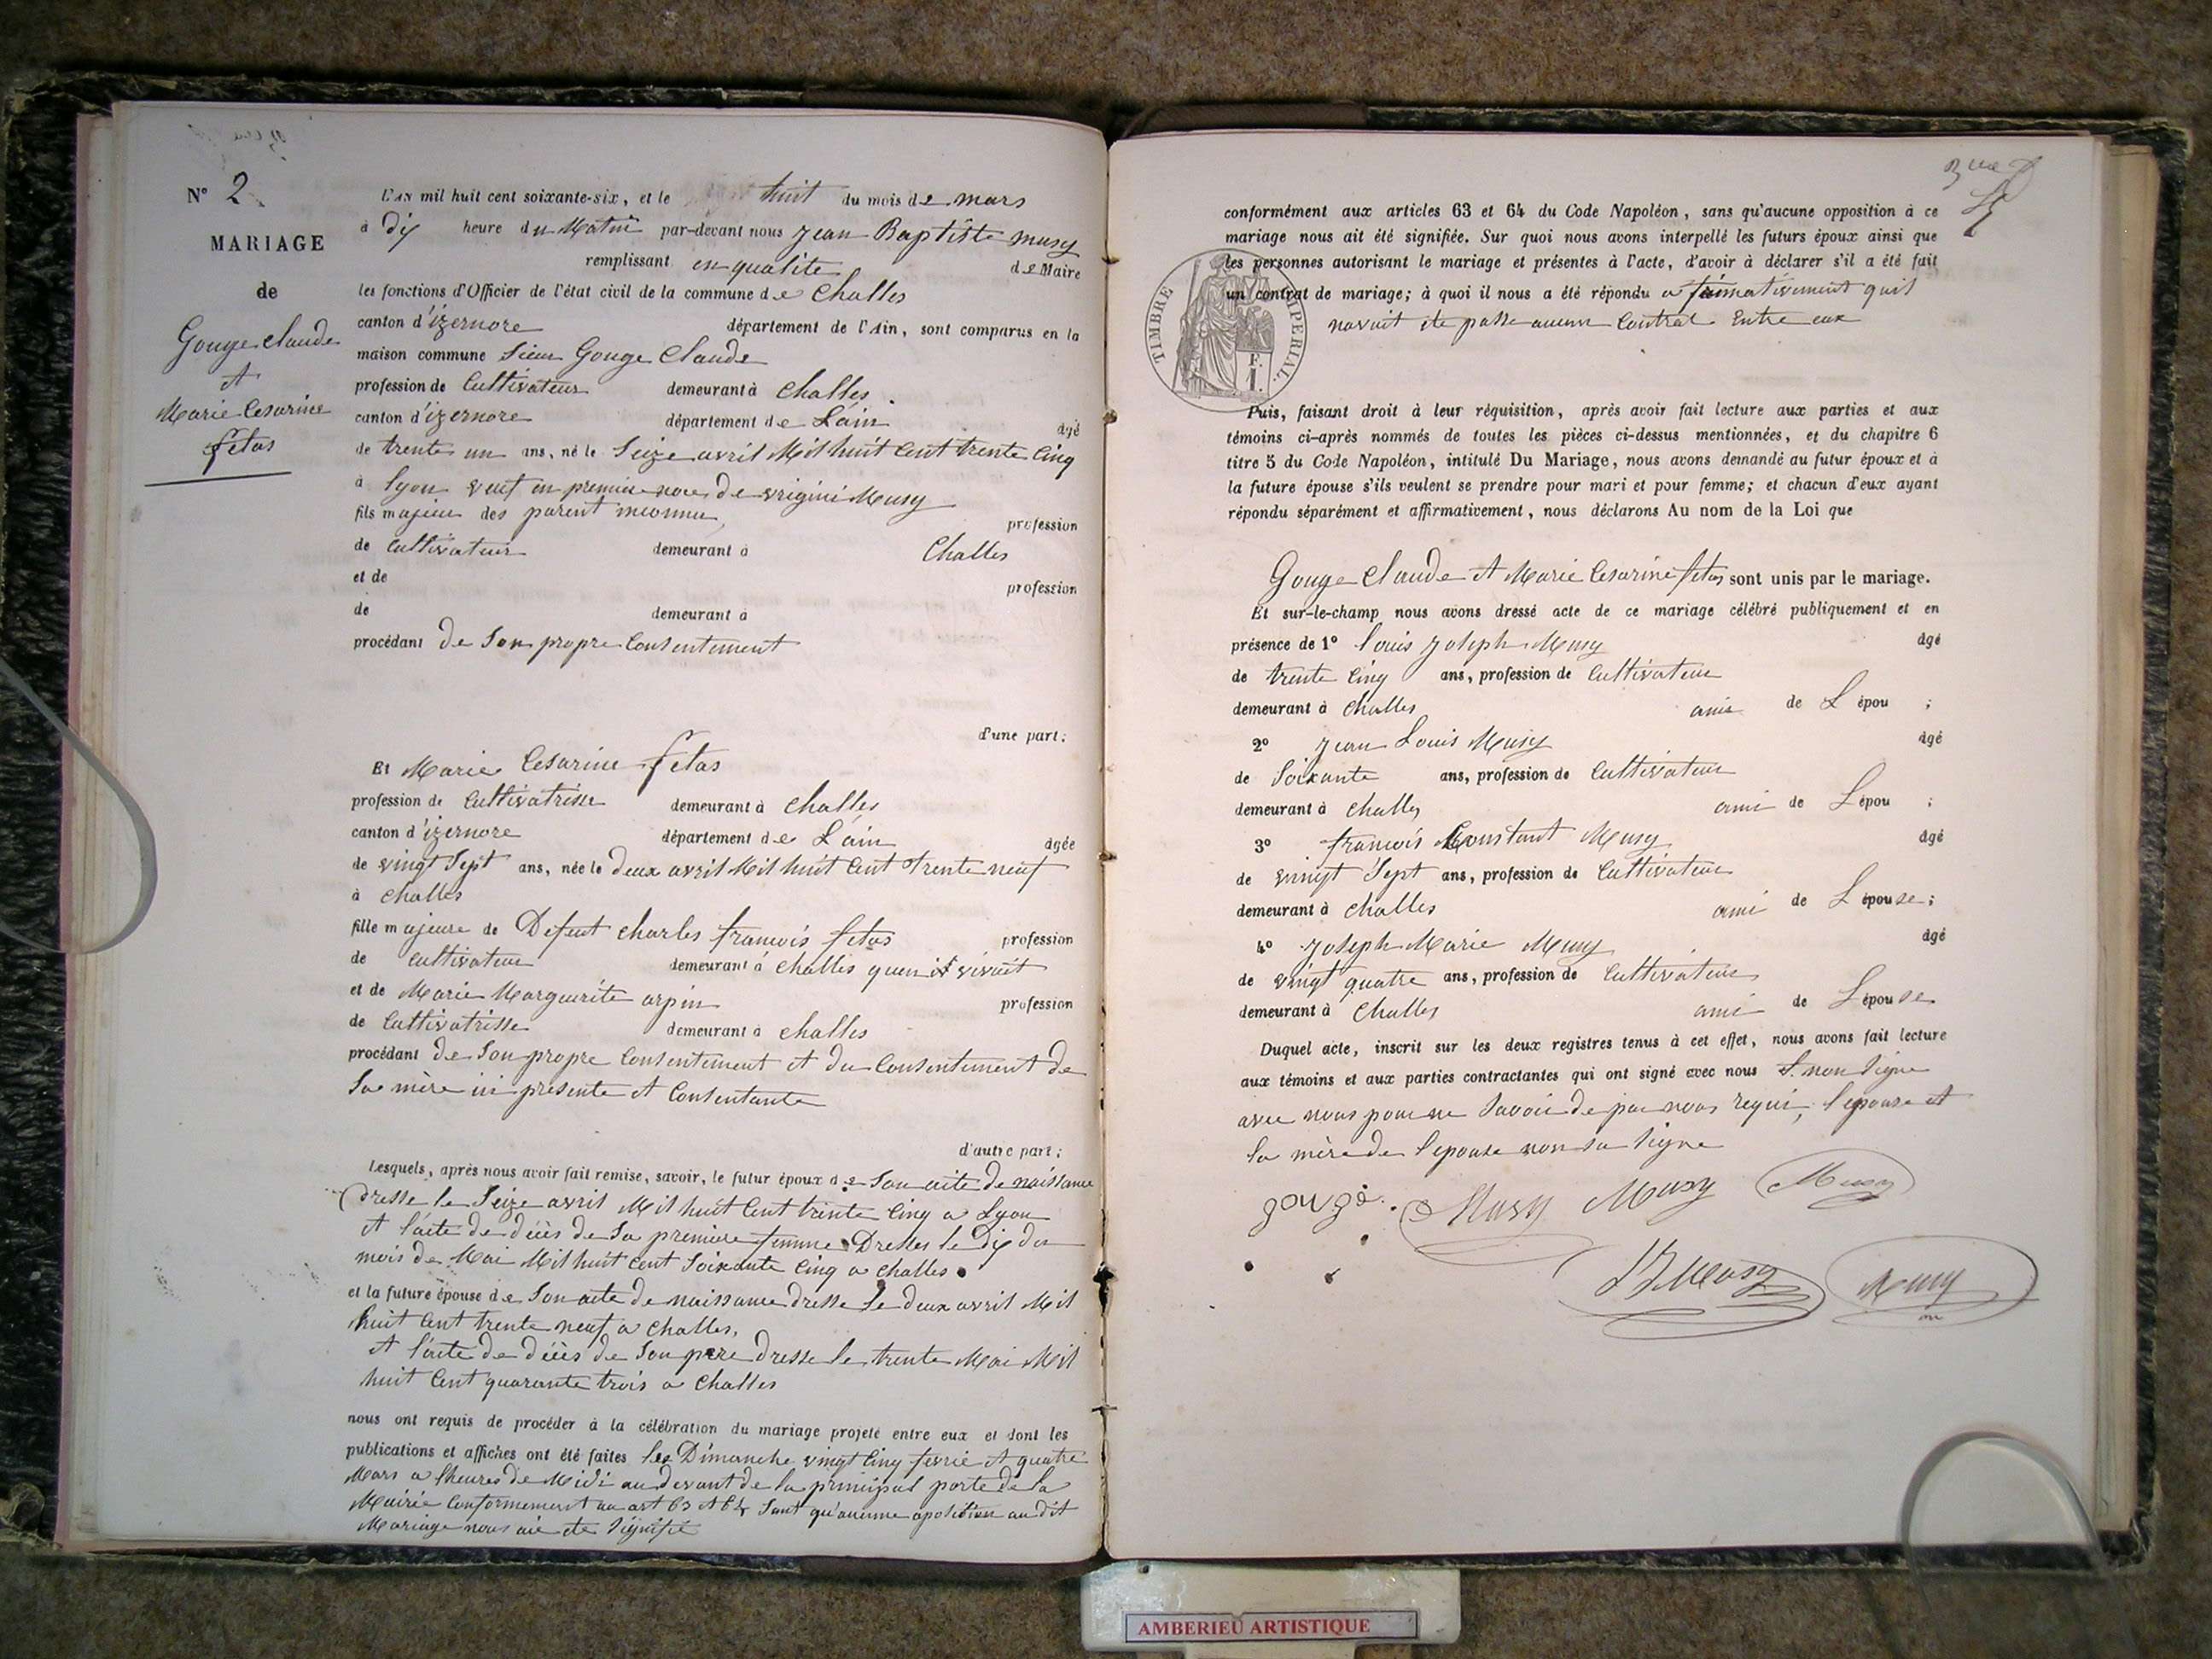 N° 2
MARIAGE
de
Gouge Claude
et
Marie Cesarine
fetas
L'AN mil huit cent soixante-six, et le huit du mois de mars
à dix heure du Matin par-devant nous Jean Baptiste Musy
remplissant en qualite de Maire
les fonctions d'Officier de l'état civil de la commune de Challes
canton d'izernore département de l'Ain, sont comparus en la
maison commune Sieur Gouge Claude
profession de Cultivateur demeurant à Challes
canton d'izernore département de L'ain âgé
de trente un ans, né le Seize avril Mil huit Cent trente Cinq
à Lyon veuf en premiere noce de virginie Musy
fils majeur des parent inconnu profession
de Cultivateur demeurant à Challes
et de profession
de demeurant à
procédant de Son propre Consentement
d'une part;
Et Marie Cesarine fetas
profession de Cultivatrisse demeurant à Challes
canton d'izernore département de L'ain âgée
de vingt Sept ans, née le deux avril Mil huit Cent trente neuf
à Challes
fille majeure de Defeut Charles francois fetas profession
de Cultivateur demeurant à Challes quen il vivait
et de Marie Marguerite arpin profession
de Cultivatrisse demeurant à Challes
procédant de Son propre Consentement et du Consentement de
Sa mère ici presente et Consentante
d'autre part;
Lesquels, après nous avoir fait remise, savoir, le futur époux de Son acte de naissance
dresse le Seize avril Mil huit Cent trente Cinq a Lyon
et l'acte de déces de Sa premiere femme Dresses le dix du
mois de Mai Mil huit Cent Soixante Cinq a Challes
et la future épouse de Son acte de naissance dresse le deux avril Mil
huit Cent trente neuf a Challes,
et l'acte de déces de Son pere dresse le trente Mai Mil
huit Cent quarante trois a Challes
nous ont requis de procéder à la célébration du mariage projeté entre eux et dont les
publications et affiches ont été faites les Dimanche vingt Cinq fevrie et quatre
Mars a lheures de Midi au devant de la principal porte de la
Mairie Conformement au art 63 et 64 Sant qu'aucune oposition au dit
Mariage nous aie ete Signifié
conformément aux articles 63 et 64 du Code Napoléon, sans qu'aucune opposition à ce
mariage nous ait été signifiée. Sur quoi nous avons interpellé les futurs époux ainsi que
les personnes autorisant le mariage et présentes à l'acte, d'avoir à déclarer s'il a été fait
un contrat de mariage; à quoi il nous a été répondu afirmativement quil
navait ete passe aucun Contrat Entre eux
TIMBRE IMPERIAL
F.
1.
Puis, faisant droit à leur réquisition, après avoir fait lecture aux parties et aux
témoins ci-après nommés de toutes les pièces ci-dessus mentionnées, et du chapitre 6
titre 5 du Code Napoléon, intitulé Du Mariage, nous avons demandé au futur époux et à
la future épouse s'ils veulent se prendre pour mari et pour femme; et chacun d'eux ayant
répondu séparément et affirmativement, nous déclarons Au nom de la Loi que
Gouge Claude et Marie Cesarine fetas sont unis par le mariage.
Et sur-le-champ nous avons dressé acte de ce mariage célébré publiquement et en
présence de 1° Louis Joseph Musy âgé
de trente Cinq ans, profession de Cultivateur
demeurant à Challes ami de L épou ;
2° Jean Louis Musy âgé
de Soixante ans, profession de Cultivateur
demeurant à Challes ami de L épou ;
3° francois Constant Musy âgé
de vingt Sept ans, profession de Cultivateur
demeurant à Challes ami de L épouse ;
4° Joseph Marie Musy âgé
de vingt quatre ans, profession de Cultivateur
demeurant à Challes ami de L épouse
Duquel acte, inscrit sur les deux registres tenus à cet effet, nous avons fait lecture
aux témoins et aux parties contractantes qui ont signé avec nous non Signe
avec nous pour ne Savoir de par nous requi, l'epouse et
la mère de l'epouse non Su Signe
gougè. Musy Musy Musy
JBMusy Musy
AMBERIEU ARTISTIQUE